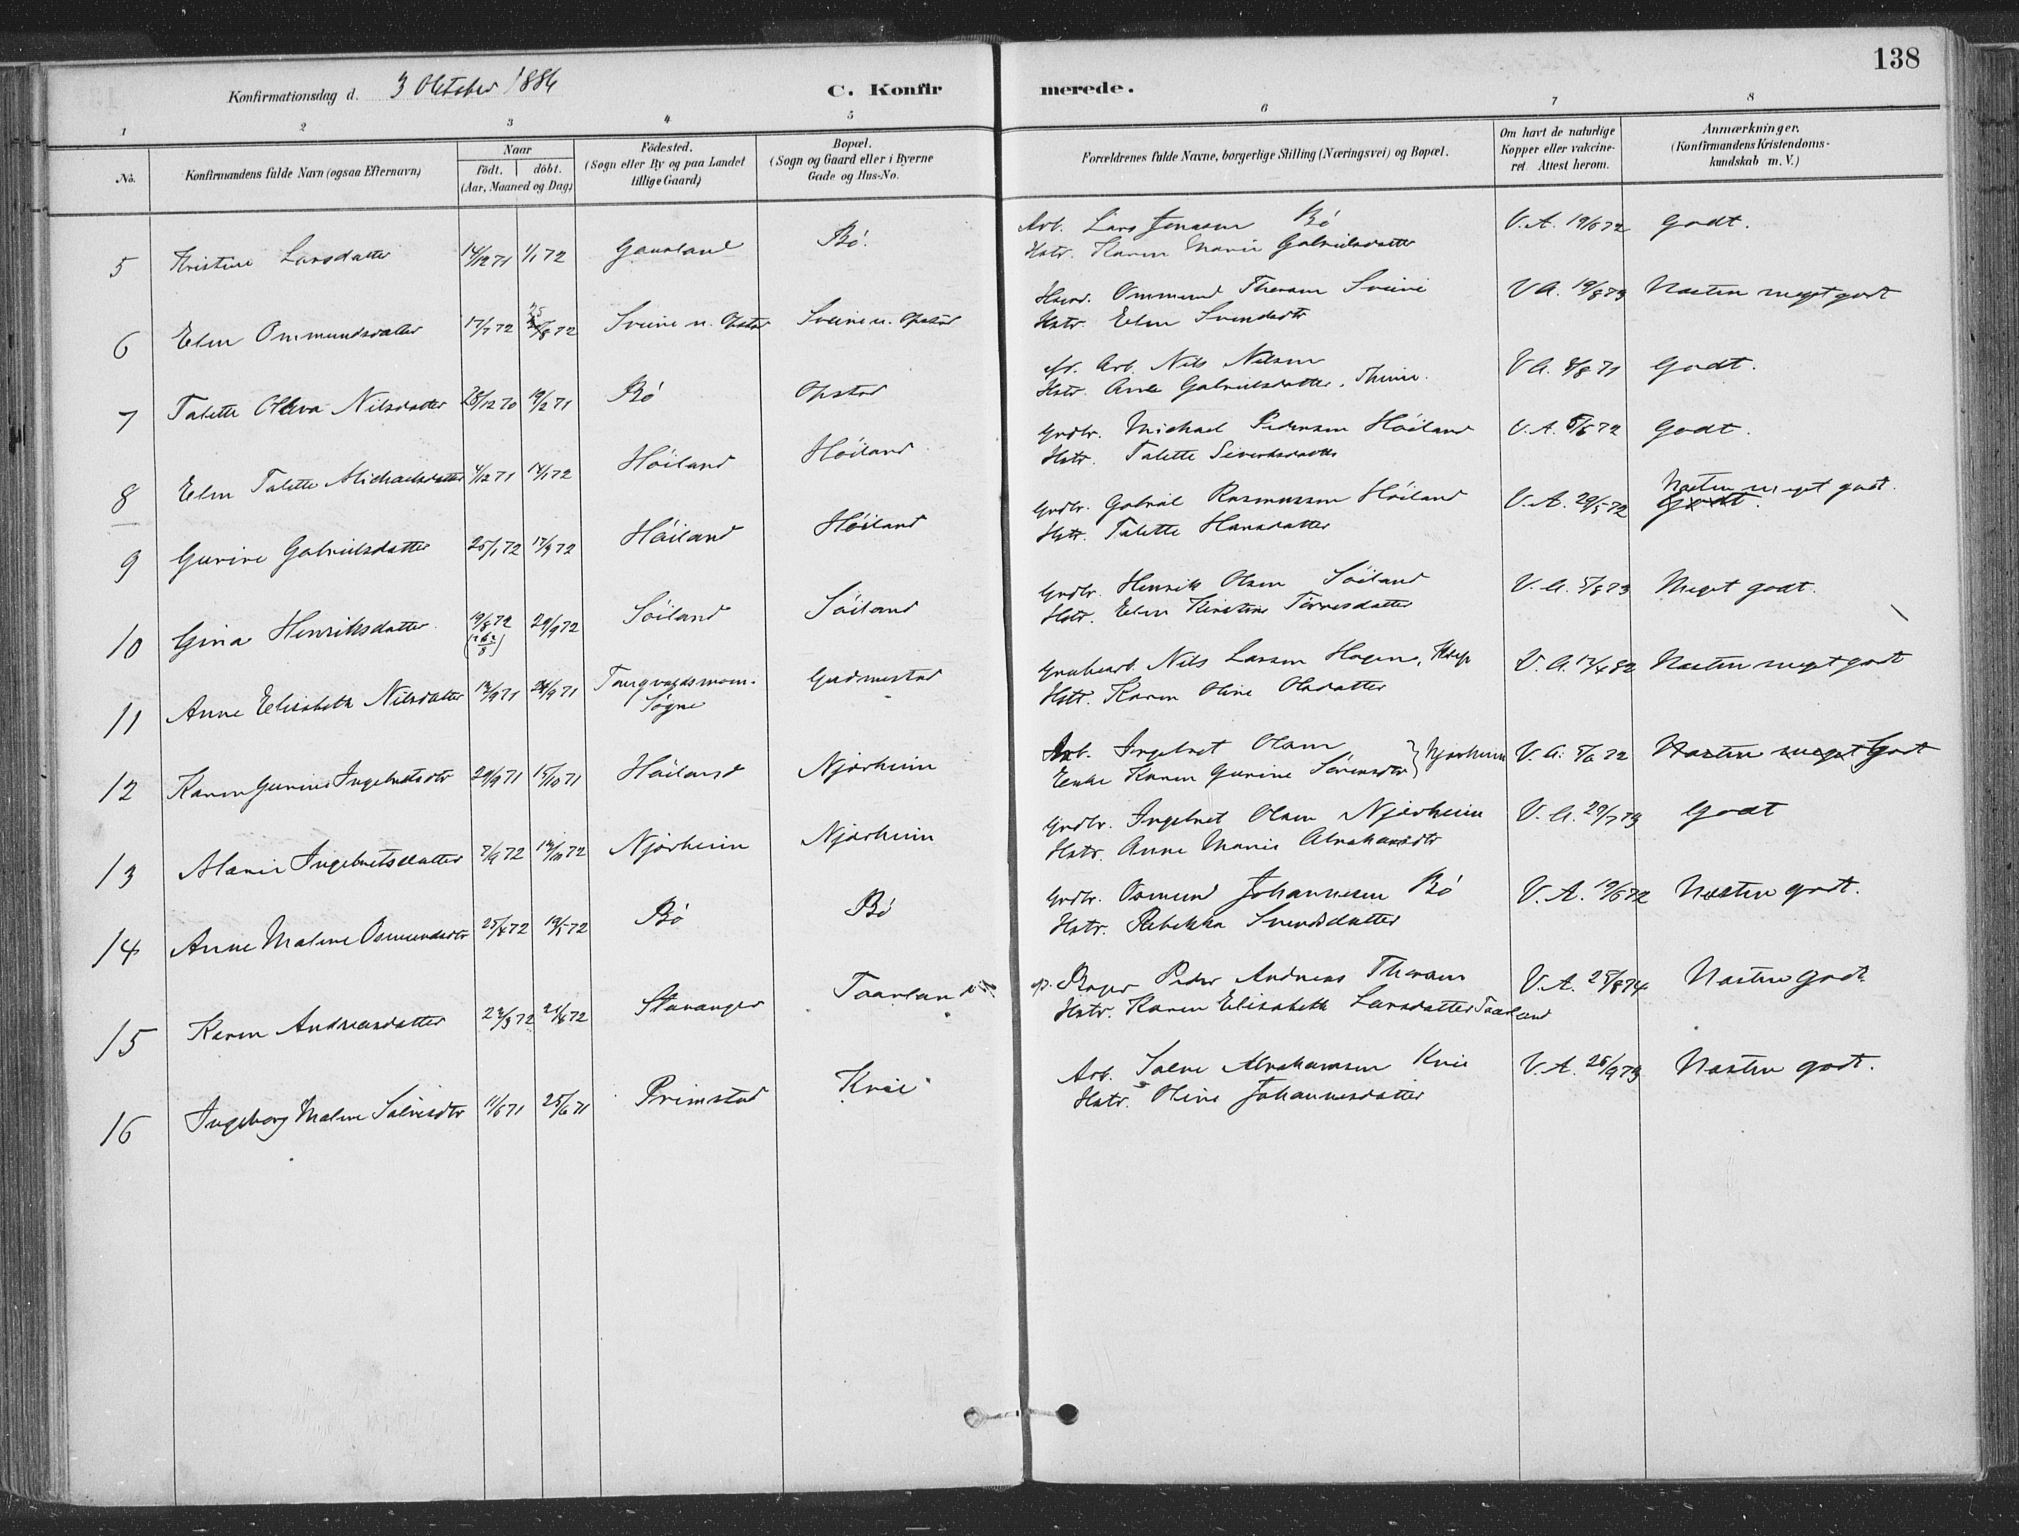 138
Konfirmationsdag d. 3 Oktober 1886
C. Konfirmerede.
1 2 3 4 5 6 7 8
No.
Konfirmandens fulde Navn (ogsaa Efternavn)
Naar
födt. döbt.
(Aar, Maaned og Dag)
Födested.
(Sogn eller By og paa Landet
tillige Gaard)
Bopæl.
(Sogn og Gaard eller i Byerne
Gade og Hus-No.
Forældrenes fulde Navne, borgerlige Stilling (Næringsvei) og Bopæl.
Om havt de naturlige
Kopper eller vakcine-
ret. Attest herom.
Anmærkninger.
(Konfirmandens Kristendoms-
kundskab m. V.)
5 Kristine Larsdatter 14/12 71 1/1 72 Gausland Bö. Arb. Lars Jonasen Bö V. A. 19/6 72 Godt.
Hstr. Karen Marie Gabrielsdatter
6 Elen Ommundsdatter 17/7 72 25/8 72 Sveine n. Opstad Sveine n. Opstad Ommund Thorsen Sveine V A. 19/8 73 Næsten meget godt
Hstr. Elen Svendsdtr
7 Talette Oleva Nilsdatter 28/12 70 19/2 71 Bö Opstad Arb. Nils Nilsen V A. 8/8 71 Godt.
Hstr. Ane Gabrielsdatter, Thime.
8 Elen Talette Michaelsdatter 4/12 71 14/1 72 Höiland Höiland Grdbr. Michael Pedersen Höiland V. A. 5/6 72 Godt.
Hstr. Talette Sivertsdatter
9 Gurine Gabrielsdatter 25/1 72 17/3 72 Höiland Höiland Grdbr. Gabriel Rasmussen Höiland V. A. 29/5 72 Næsten meget godt.
Hstr. Talette Hansdatter Godt.
10 Gina Henriksdatter 19/8 72 29/9 72 Söiland Söiland Grdbr. Henrik Olsen Söiland V. A. 5/8 73 Meget godt.
Hstr. Elen Kirstine Törresdatter
11 Anne Elisabeth Nilsdatter 12/9 71 24/9 71 Gudmestad Nils Larsen Hagen, Klep V. A. 12/4 82 Næsten meget godt
Sogne Hstr. Karen Oline Olsdatter
12 Karen Gurine Ingebretsdtr 29/9 71 15/10 71 Höiland Njærheim Arb. Ingebret Olsen } Njærheim V. A. 5/6 72 Næsten meget Godt
Enke Karen Gurine Sörensdtr
13 Marie Ingebretsdatter 7/9 72 14/10 72 Njærheim Njærheim Grdbr. Ingebret Olsen Njærheim V. A. 29/7 73 Godt
Hstr. Anne Marie Abrahamsdtr
14 Anne Malene Osmundsdtr 25/4 72 19/5 72 Bö Bö Grdbr. Osmund Johannesen Bö V. A. 19/6 72 Næsten godt.
Hstr. Rebekka Svendsdatter
15 Karen Andreasdatter 22/3 72 21/4 72 Stavanger Taarland Bager Peder Andreas Thorsen V. A. 25/8 74 Næsten Godt
Hstr. Karen Elisabeth Larsdatter Taarland
16 Ingeborg Malene Salvesdtr 11/6 71 25/6 71 Primstad Kvie Arb. Salve Abrahamsen Kvie V. A. 26/9 73 Næsten godt.
Hstr. Oline Johannesdatter